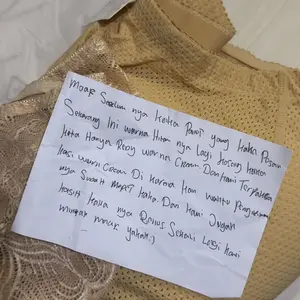 Maap Sebelum nya Kaka Paket yang Kaka Pesan
Sekarang Ini warna Hitam nya Lagi Kosong Kaka
Kaka Hanya Redy warna Cream Dan Kami Terpaksa
kasi warna Cream Di karna kan waktu Pengiriman
nya Sudah Mepet Kaka Dan Kami Juga
kasih Kaka nya Bonus Sekali Lagi kami
mintak maaf yakak:)